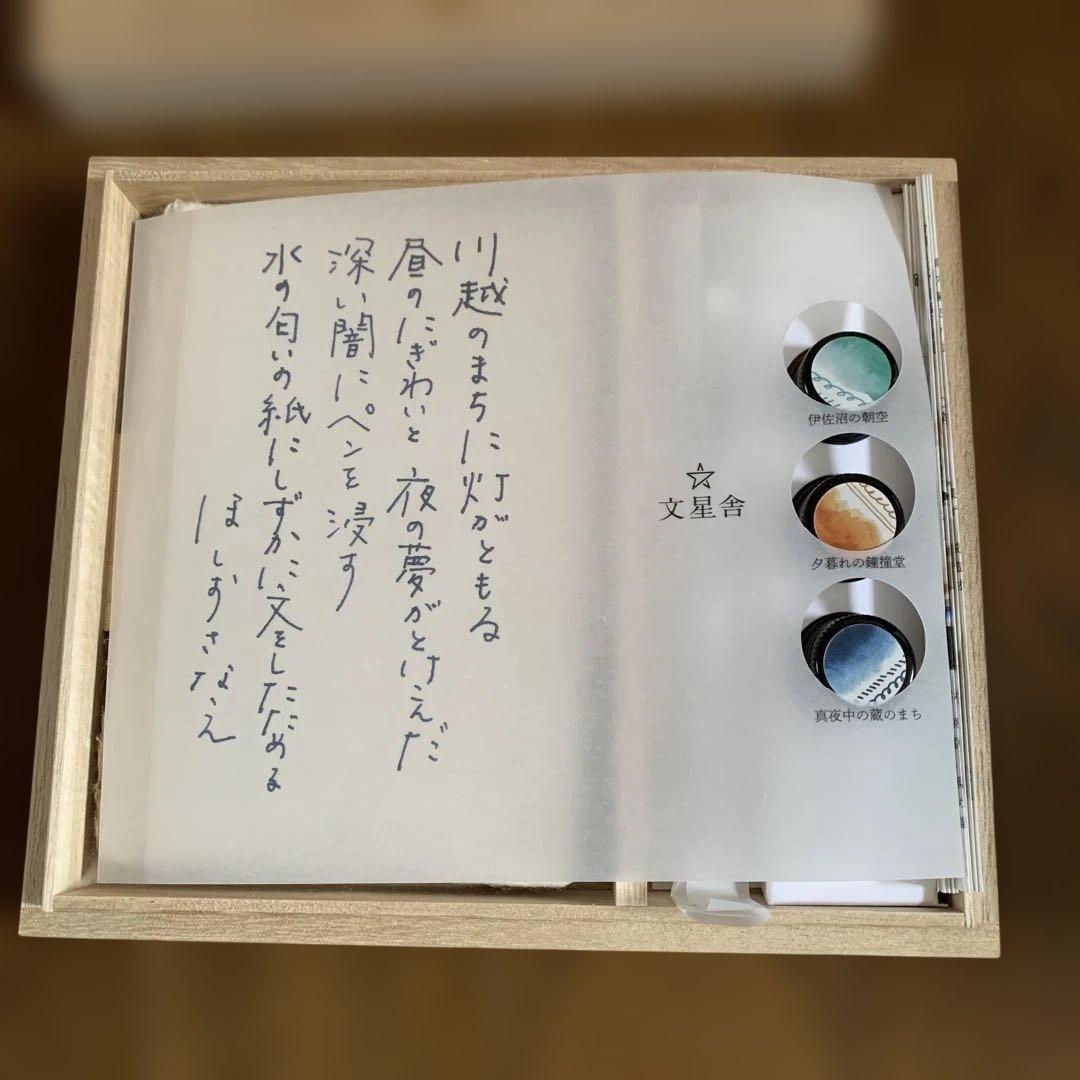 川越のまちに灯がともる
昼のにぎわいと 夜の夢がとけこんだ
深い闇にペンを浸す
水の匂いの紙にしずかに文をしたためる
ほしおさなえ
☆
文星舎
伊佐沼の朝空
夕暮れの鐘撞堂
真夜中の蔵のまち